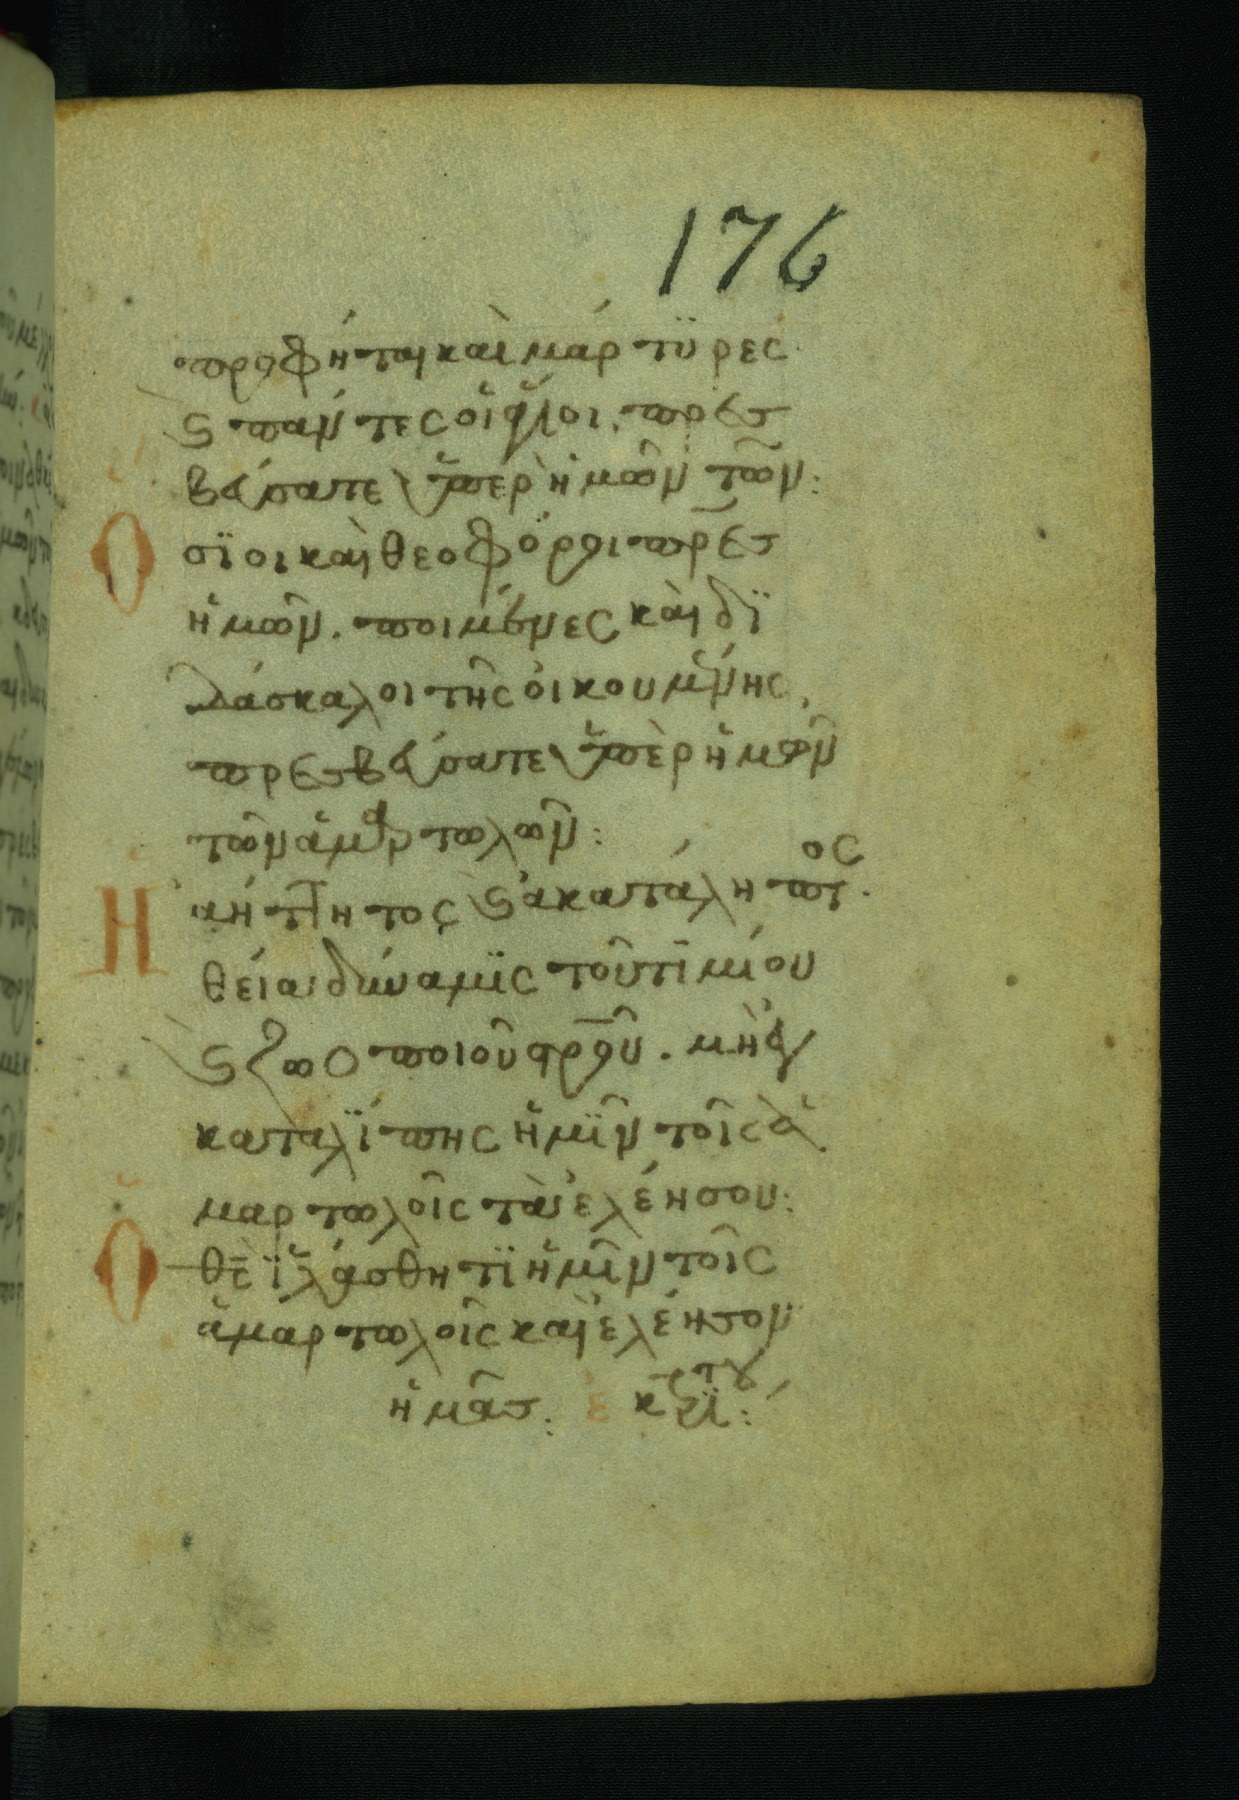 176
προφήται καὶ μάρτϋρες
ϛ πάντες οἱ ἅγιοι, πρεσ
βεύσατε ὑπὲρ ἡμῶν τῶν:
Ὁσϊοι καὶ θεοφόροι πρ̅ες
ἡμῶν. ποιμένες καὶ δϊ
δάσκαλοι τῆς οἰκουμένης,
πρεσβεύσατε ὑπὲρ ἡμῶν
τῶν ἁμαρτωλῶν:
Ἡ ἀήττητος ϛ ἀκατάληπτος.
θεία δύναμϊς τοῦ τιμίου
ϛ ζωοποιοῦ σρ̅οῦ. μὴ ἐγ
καταλΐπης ἡμῖν τοῖς ἁ
μαρτωλοῖς τὰ ἐλέη σου:
Ὁ θ̅ε̅ ϊλάσθητϊ ἡμῖν τοῖς
ἁμαρτωλοῖς καὶ ἐλέησον
ἡμᾶς: